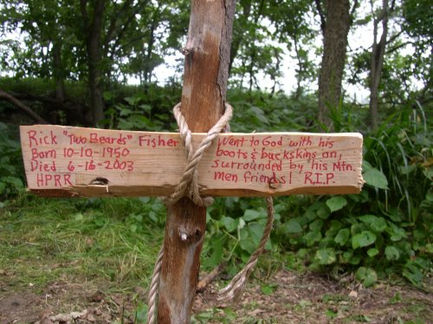 Rick "Two Beards" Fisher
Born 10-10-1950
Died 6-16-2003
HPRR
Went to God with his
boots & buckskins on,
surrounded by his Mtn.
men friends! R.I.P.